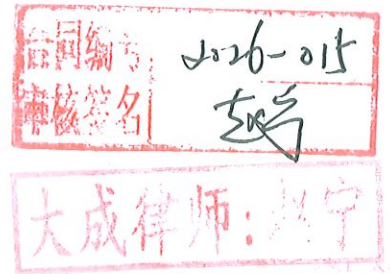 合同编号 2026-015
审核签名
大成律师:赵宁